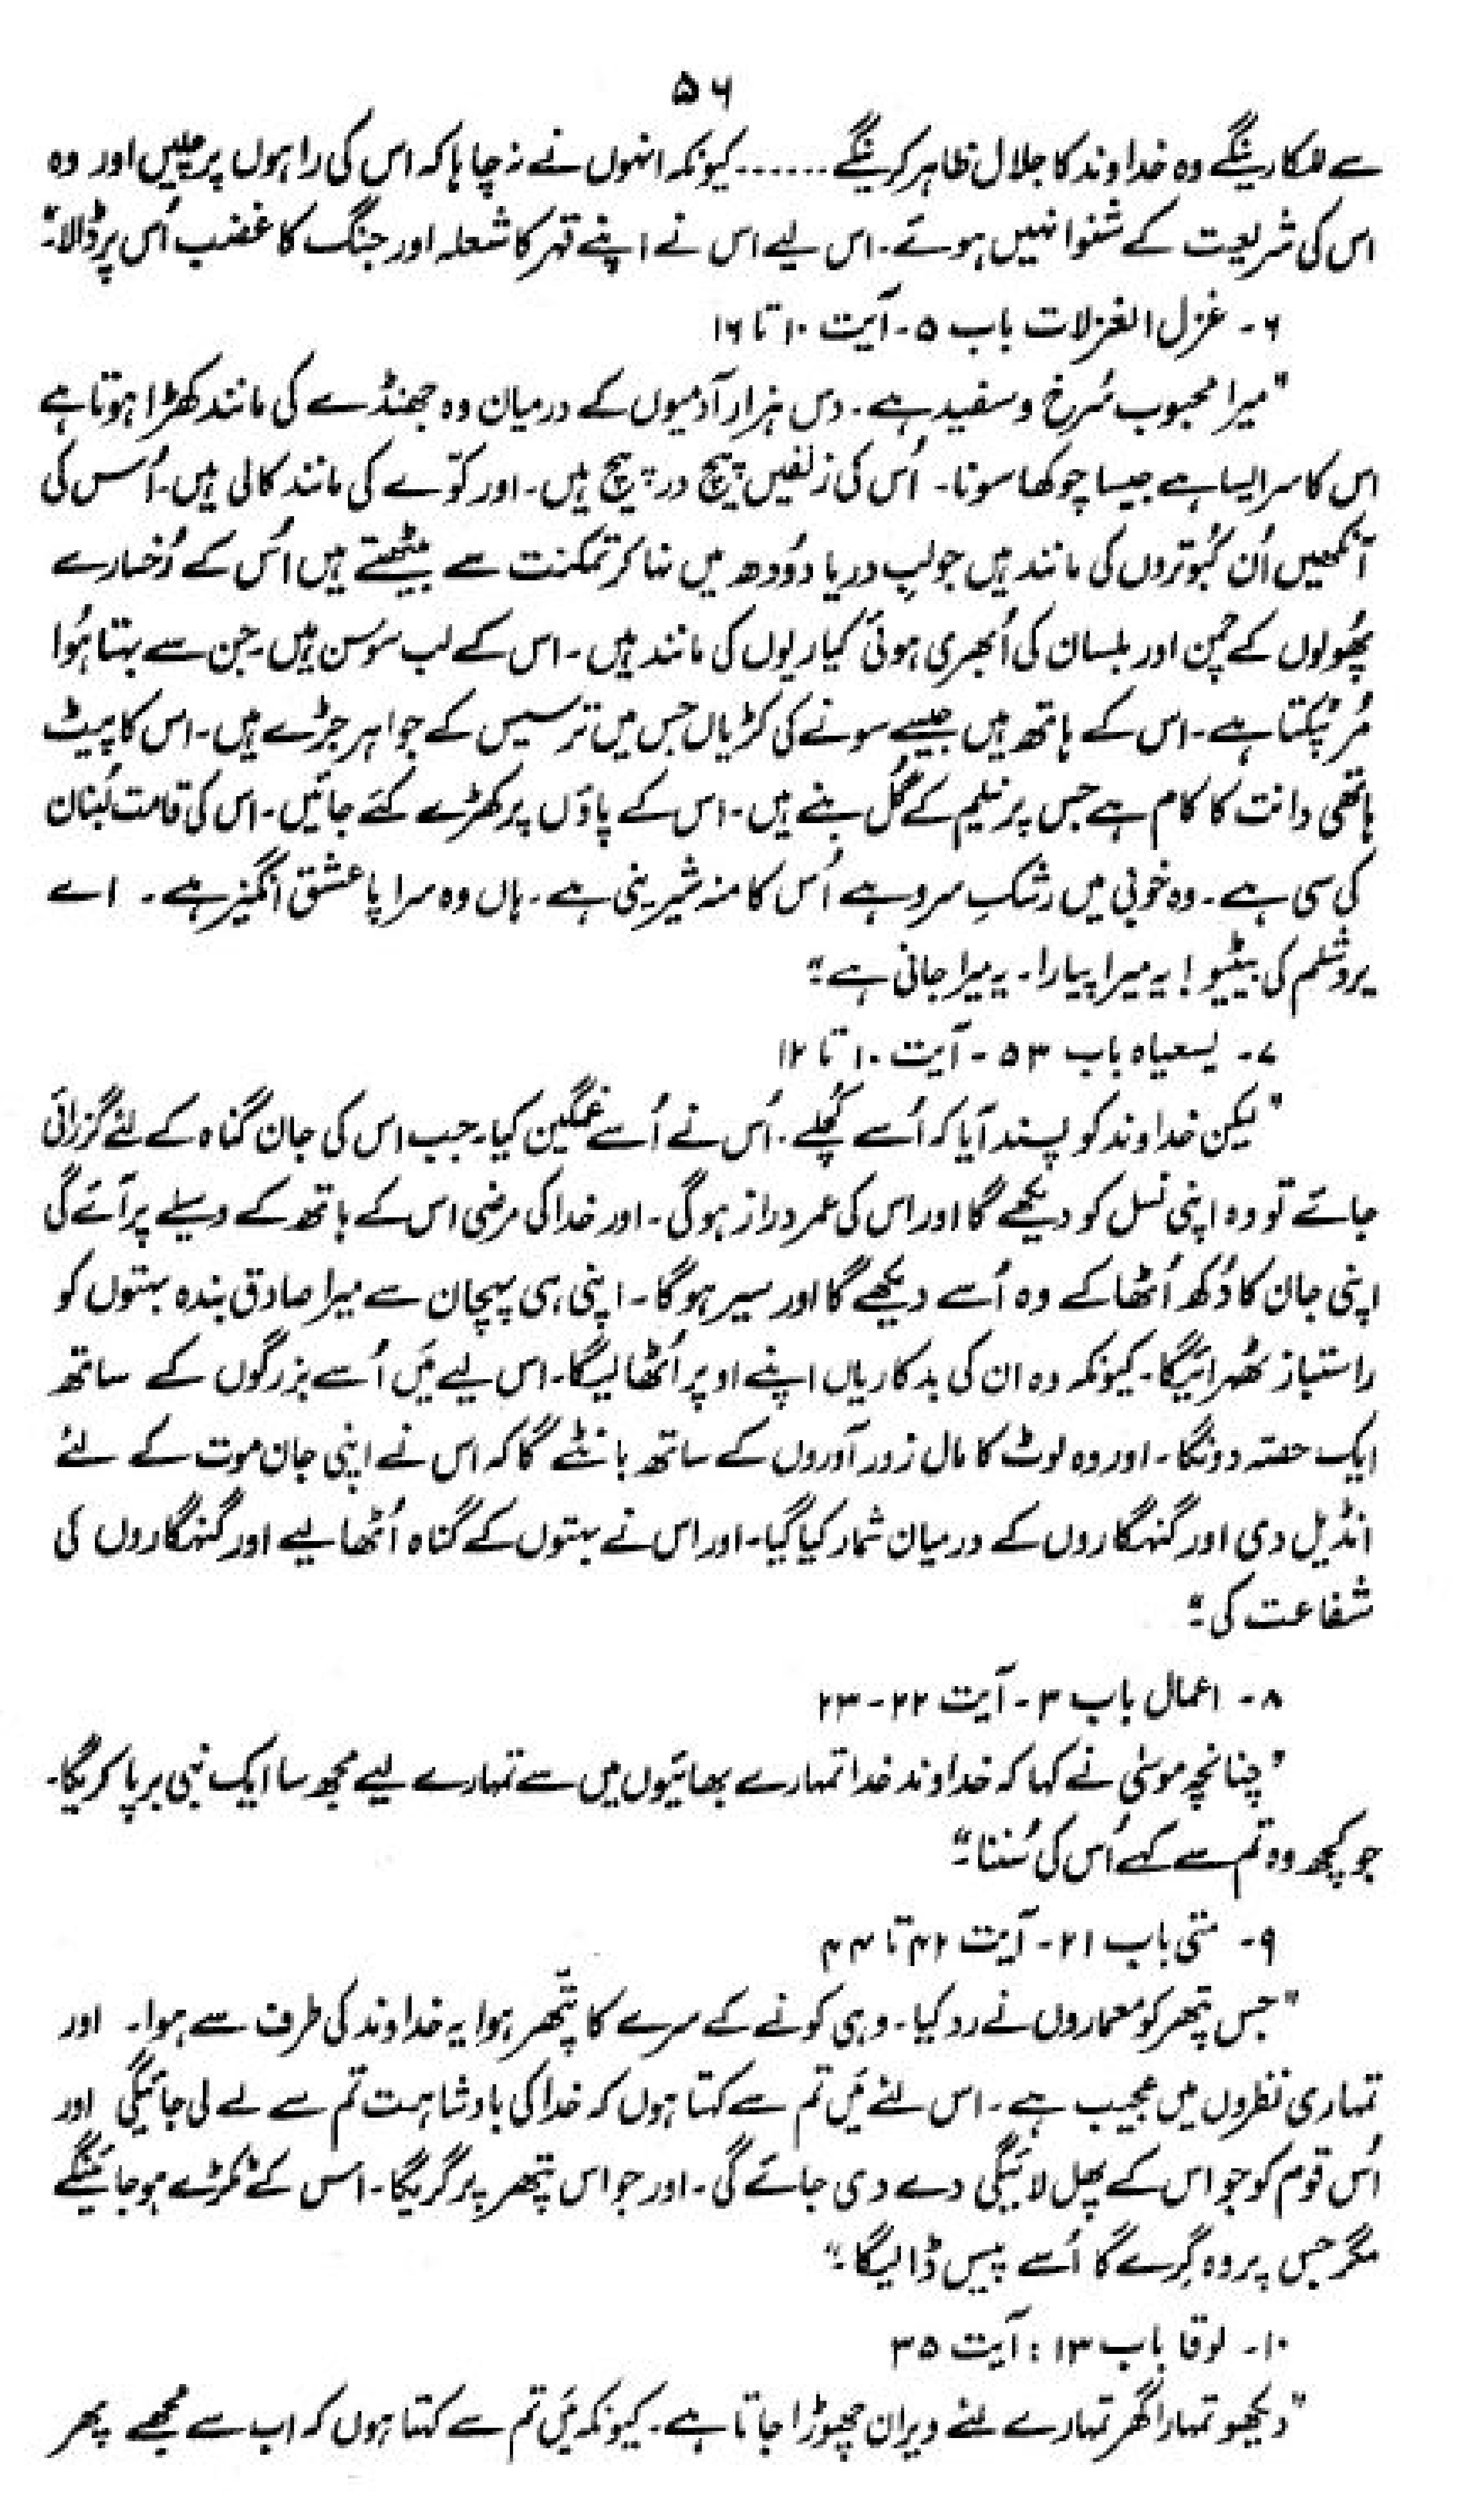 ۵۶
سے للکارینگے وہ خداوند کا جلال ظاہر کرینگے ...... کیونکہ انہوں نے نہ چاہا کہ اس کی راہوں پر چلیں اور وہ
اس کی شریعت کے شنوا نہیں ہوئے۔ اس لیے اس نے اپنے قہر کا شعلہ اور جنگ کا غضب اُس پر ڈالا۔"
۶۔ غزل الغزلات باب ۵۔ آیت ۱۰ تا ۱۶
"میرا محبوب سُرخ و سفید ہے۔ دس ہزار آدمیوں کے درمیان وہ جھنڈے کی مانند کھڑا ہوتا ہے
اس کا سر ایسا ہے جیسا چوکھا سونا۔ اُس کی زلفیں پیچ در پیچ ہیں۔ اور کوّے کی مانند کالی ہیں۔ اُس کی
آنکھیں اُن کبُوتروں کی مانند ہیں جو لبِ دریا دوُدھ میں نہا کر تمکنت سے بیٹھتے ہیں اُس کے رُخسارے
پھُولوں کے چمن اور بلسان کی اُبھری ہوئی کیاریوں کی مانند ہیں۔ اس کے لب سوَسن ہیں۔ جن سے بہتا ہُوا
مُر ٹپکتا ہے۔ اس کے ہاتھ ہیں جیسے سونے کی کڑیاں جس میں ترسیس کے جواہر جڑے ہیں۔ اس کا پیٹ
ہاتھی دانت کا کام ہے جس پر نیلم کے گُل بنے ہیں۔ اس کے پاؤں پر کھڑے کئے جائیں۔ اس کی قامت لُبنان
کی سی ہے۔ وہ خوبی میں رشکِ سرو ہے اُس کا منہ شیرینی ہے۔ ہاں وہ سراپا عشق انگیز ہے۔ اے
یروشلم کی بیٹیو! یہ میرا پیارا۔ یہ میرا جانی ہے۔"
۷۔ یسعیاہ باب ۵۳۔ آیت ۱۰ تا ۱۲
"لیکن خداوند کو پسند آیا کہ اُسے کُچلے۔ اُس نے اُسے غمگین کیا۔ جب اس کی جان گناہ کے لئے گزرانی
جائے تو وہ اپنی نسل کو دیکھے گا اور اس کی عمر دراز ہوگی۔ اور خدا کی مرضی اس کے ہاتھ کے وسیلے پر آئے گی
اپنی جان کا دُکھ اُٹھا کے وہ اُسے دیکھے گا اور سیر ہوگا۔ اپنی ہی پہچان سے میرا صادق بندہ بہتوں کو
راستباز ٹھہرائیگا۔ کیونکہ وہ ان کی بدکاریاں اپنے اوپر اُٹھا لیگا۔ اس لیے مَیں اُسے بزرگوں کے ساتھ
ایک حصّہ دونگا۔ اور وہ لوٹ کا مال زور آوروں کے ساتھ بانٹے گا کہ اس نے اپنی جان موت کے لئے
انڈیل دی اور گنہگاروں کے درمیان شمار کیا گیا۔ اور اس نے بہتوں کے گناہ اُٹھا لیے اور گنہگاروں کی
شفاعت کی۔"
۸۔ اعمال باب ۳۔ آیت ۲۲-۲۳
"چنانچہ موسیٰ نے کہا کہ خداوند خدا تمہارے بھائیوں میں سے تمہارے لیے مجھ سا ایک نبی برپا کریگا۔
جو کچھ وہ تم سے کہے اُس کی سُننا۔"
۹۔ متی باب ۲۱۔ آیت ۴۲ تا ۴۴
"جس پتھر کو معماروں نے رد کیا۔ وہی کونے کے سرے کا پتّھر ہوا یہ خداوند کی طرف سے ہوا۔ اور
تمہاری نظروں میں عجیب ہے۔ اس لئے مَیں تم سے کہتا ہوں کہ خدا کی بادشاہت تم سے لے لی جائیگی اور
اُس قوم کو جو اس کے پھل لائیگی دے دی جائے گی۔ اور جو اس پتھر پر گریگا۔ اس کے ٹکڑے ہو جائینگے
مگر جس پر وہ گرے گا اُسے پیس ڈالیگا۔"
۱۰۔ لوقا باب ۱۳: آیت ۳۵
"دیکھو تمہارا گھر تمہارے لئے ویران چھوڑا جاتا ہے۔ کیونکہ مَیں تم سے کہتا ہوں کہ اب سے مُجھے پھر